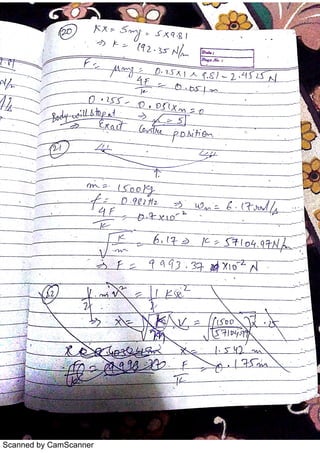 20 Kx = 5mg = 5x9.81
⇒ K = 192.35 N/m
Date :
Page No :
F = μmg = 0.25x1x9.81 = 2.4525 N
4F/K = 0.051m
0.255 - 0.051xn = 0
Body will stop at ⇒ n = 5
⇒ Exact Centre position
21
m = 1500kg
f = 0.982Hz ⇒ Wn = 6.17 rad/s
4F/K = 0.7x10⁻²
√K/m = 6.17 ⇒ K = 57104.97N/m
⇒ F = 9993.37 x10⁻² N
1/2 mv² = 1/2 Kx²
x = 1.542 m
F/K = 0.175m
Scanned by CamScanner